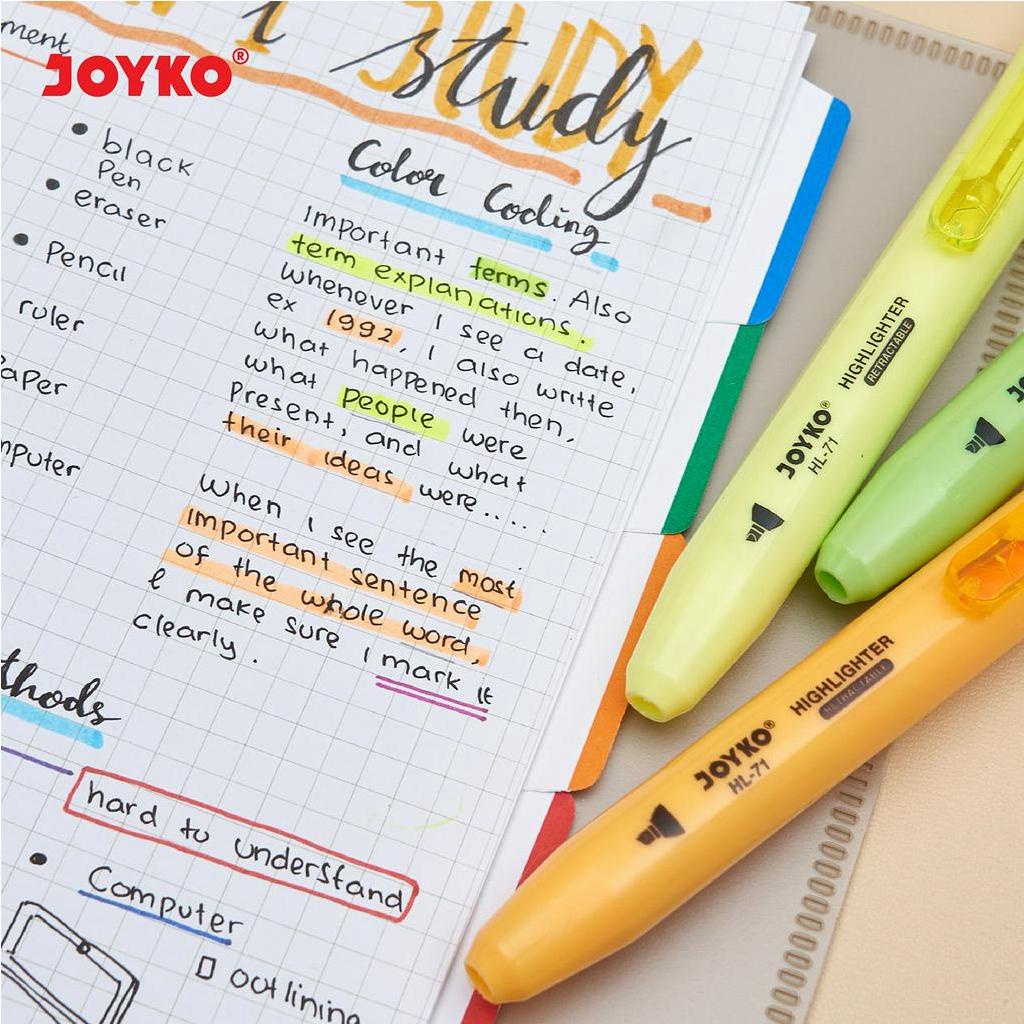 STUDY
I study
ment
JOYKO®
• black
Pen
• eraser
• Pencil
ruler
Color Coding
Important terms. Also
term explanations.
whenever I see a date,
ex 1992, I also writte
what happened then,
what people were
Present, and what
their ideas were.....
When I see the most
important sentence
of the whole word,
I make sure I mark it
clearly.
thods
hard to understand
• Computer
outlining
HIGHLIGHTER
RETRACTABLE
JOYKO®
HL-71
HIGHLIGHTER
RETRACTABLE
JOYKO®
HL-71